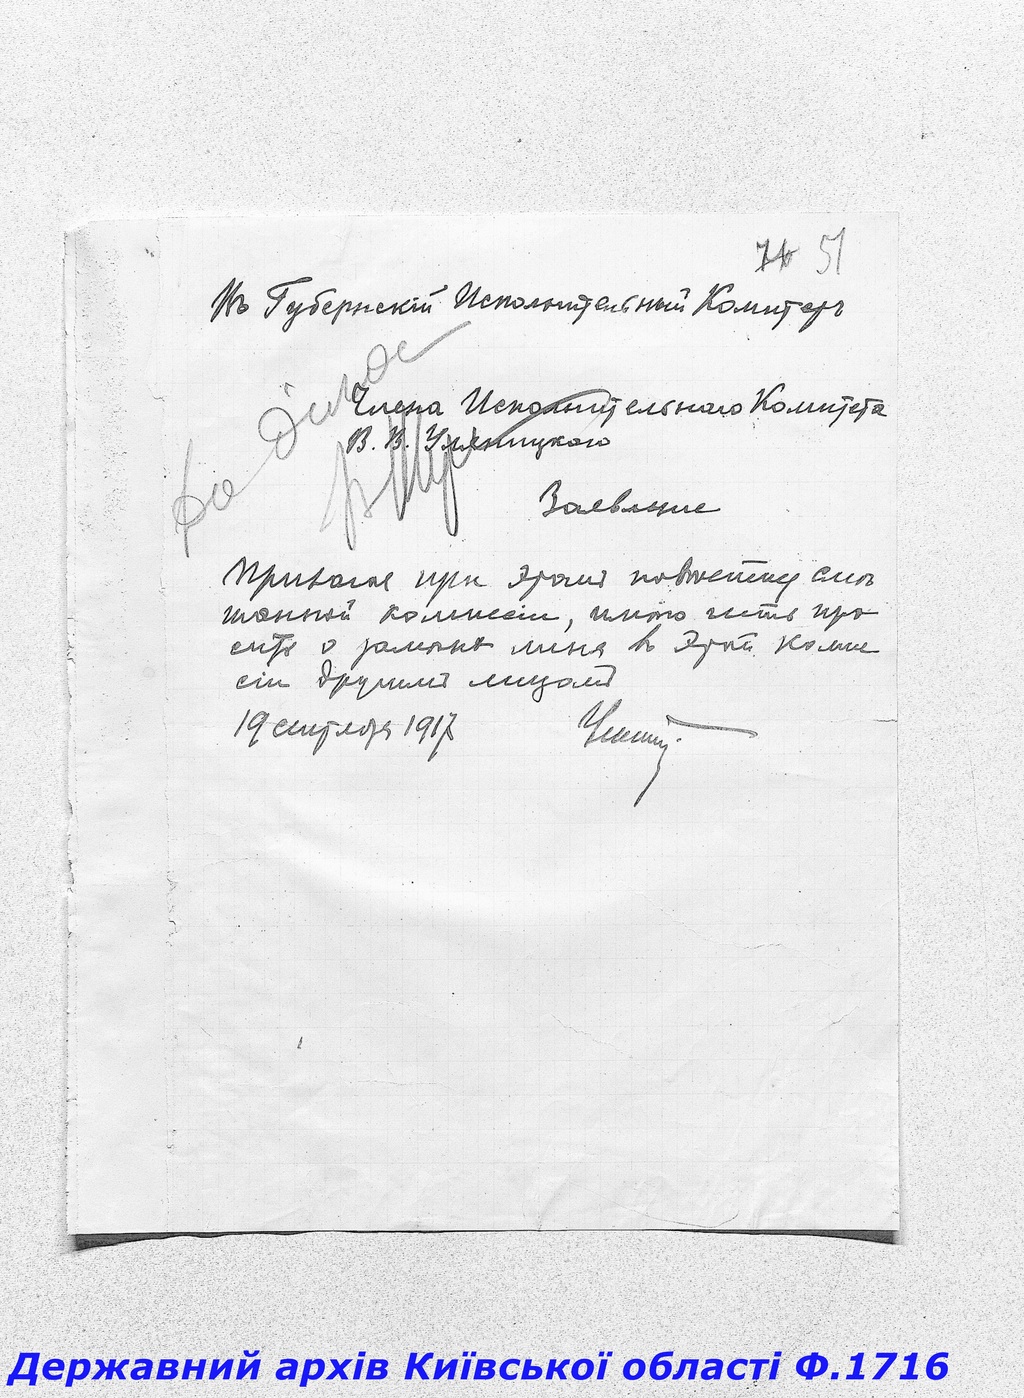 51
Въ Губернскій Исполнительный Комитетъ
Члена Исполнительнаго Комитета
В. В. Уляницкаго
Заявление
Прилагая при этомъ повѣстку смѣ
шанной комиссіи, имѣю честь про
сить о замѣнѣ меня въ этой комис
сіи другимъ лицомъ
19 сентября 1917
Державний архів Київської області Ф.1716